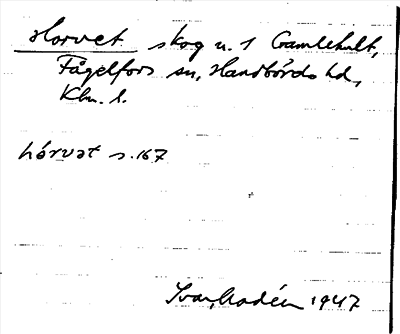 Horvet skog u. 1 Gamlehult,
Fågelfors sn, Handbörds hd,
Klm. l.
hórvət s. 167
Ivar Modéer 1947